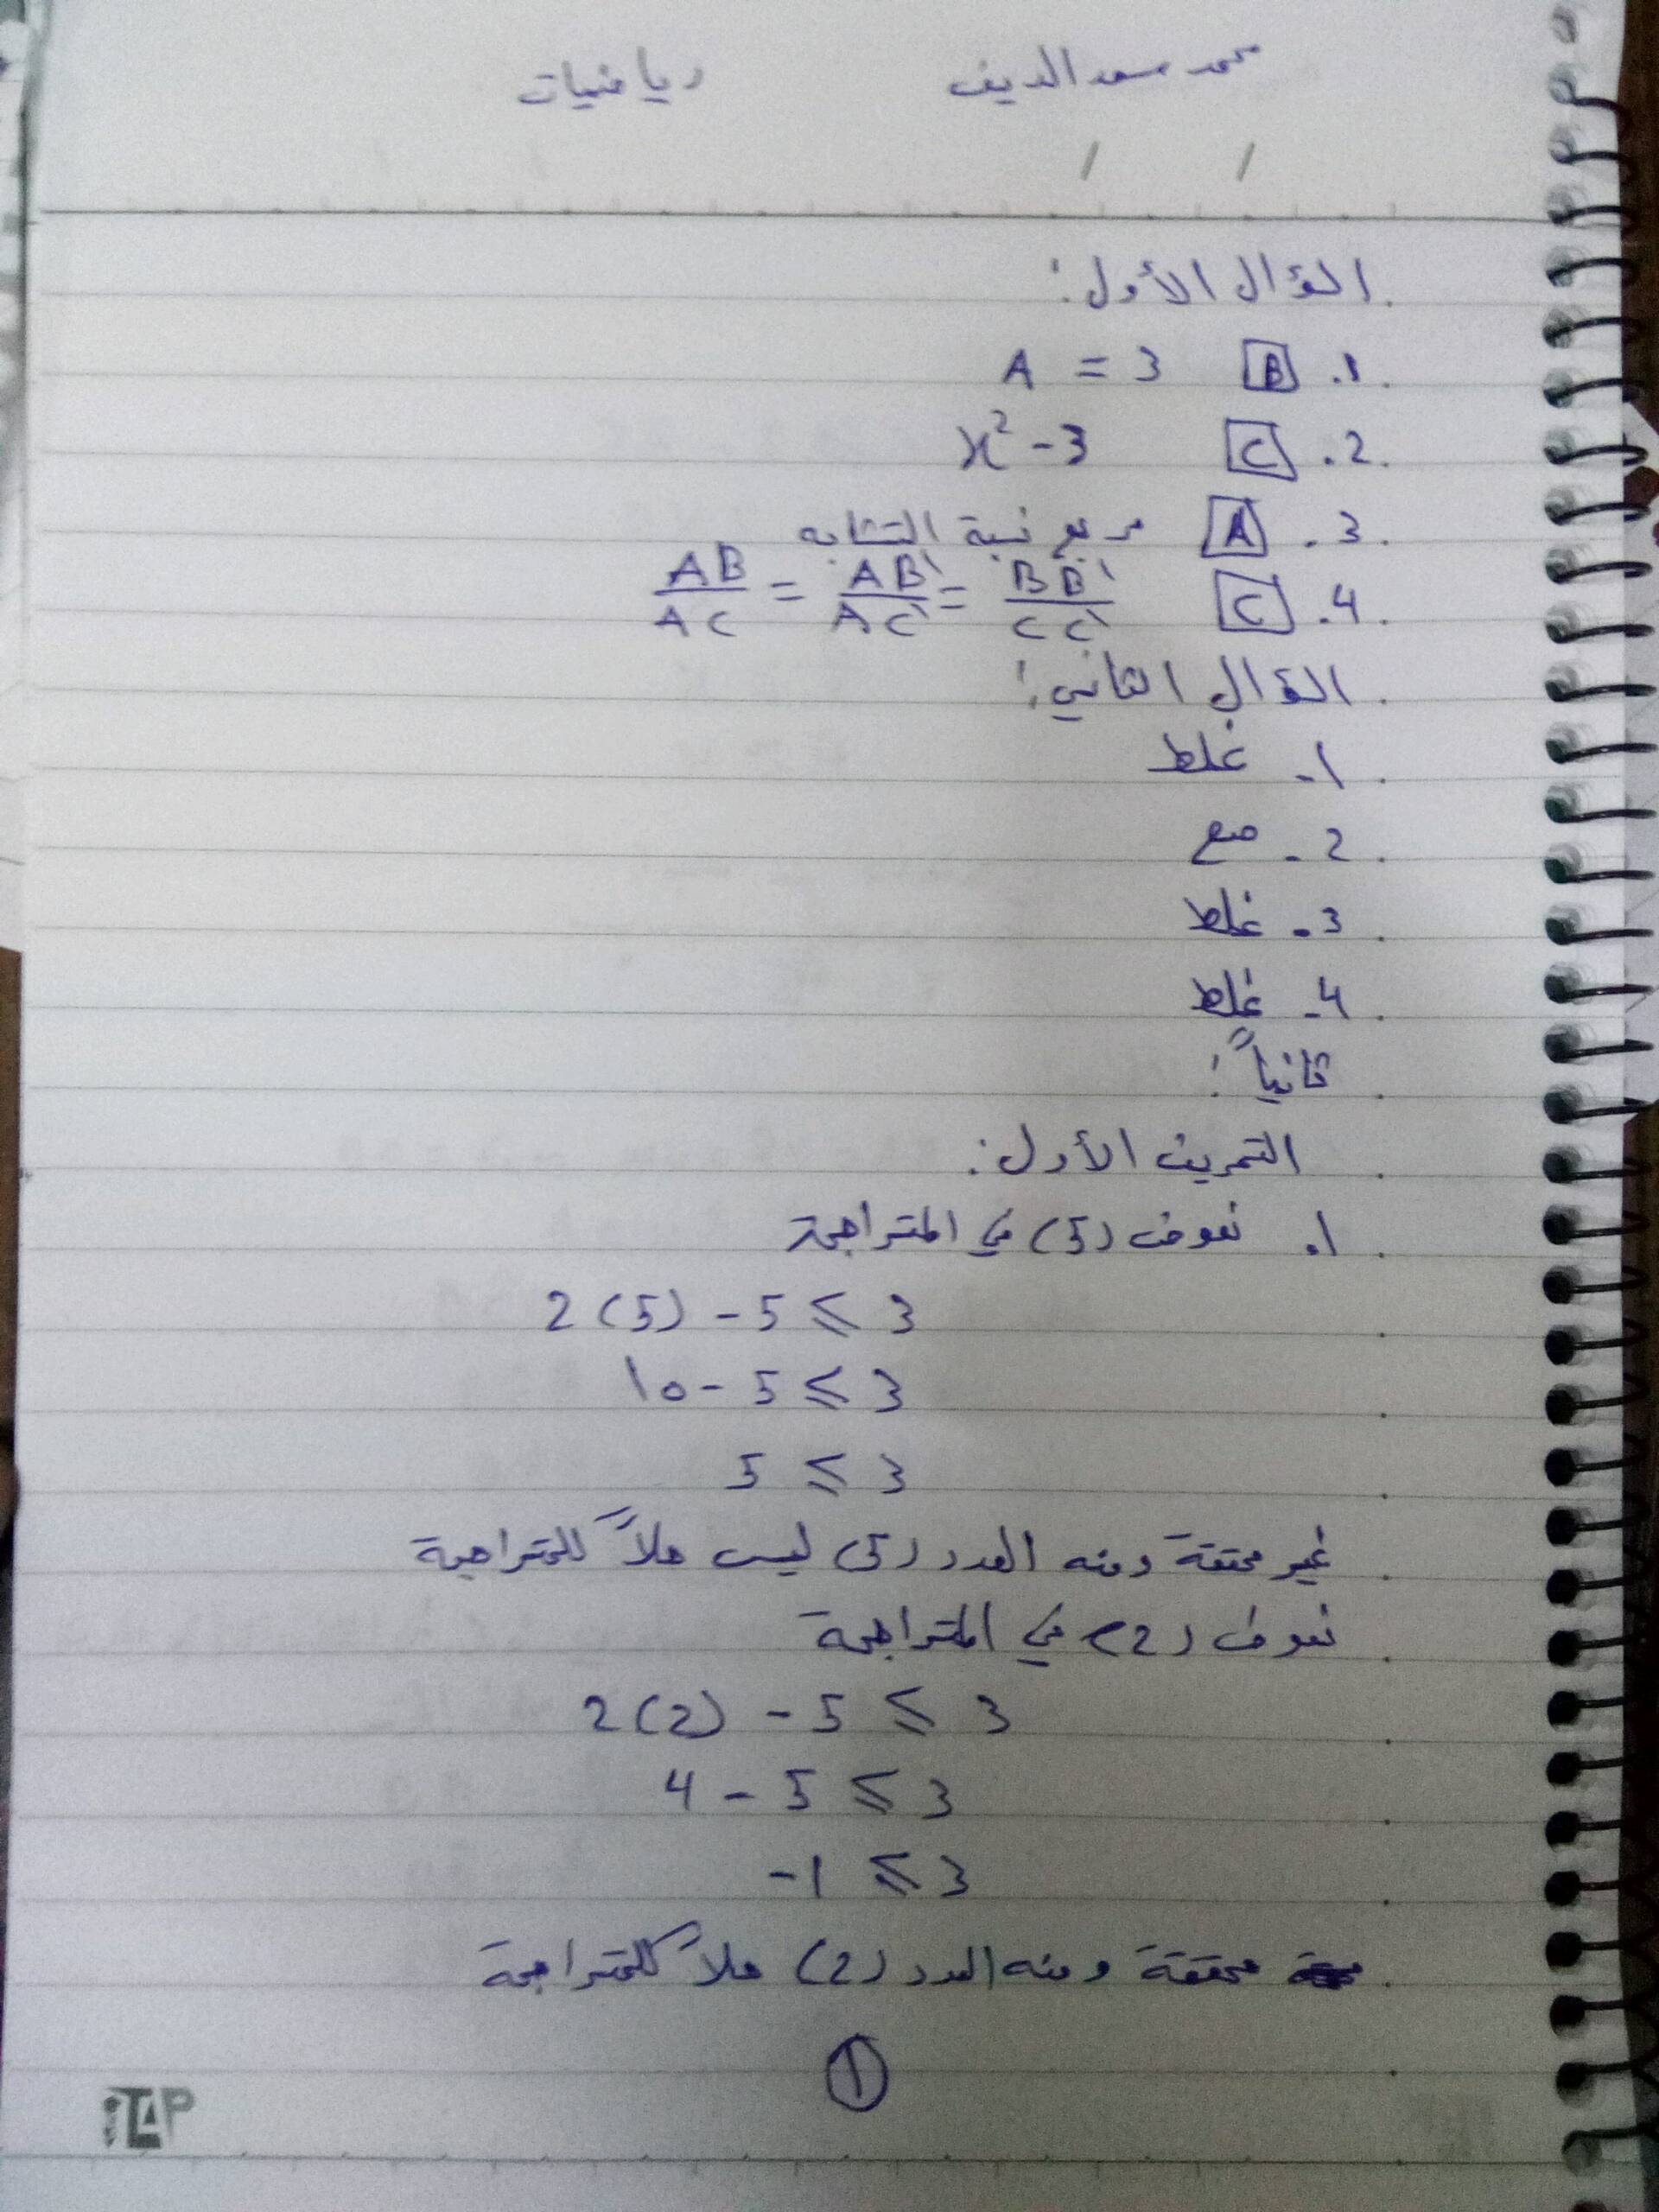 محمد سعد الدين رياضيات
/ /
السؤال الأول:
1. B A = 3
2. C x² - 3
3. A مربع نسبة التشابه
4. C AB/AC = AB'/AC' = BB'/CC'
السؤال الثاني:
1- غلط
2- صح
3- غلط
4- غلط
ثانياً:
التمرين الأول:
1. نعوض (5) في المتراجحة
2(5) - 5 ≤ 3
10 - 5 ≤ 3
5 ≤ 3
غير محققة ومنه العدد (5) ليس حلاً للمتراجحة
نعوض (2) في المتراجحة
2(2) - 5 ≤ 3
4 - 5 ≤ 3
-1 ≤ 3
محققة ومنه العدد (2) حلاً للمتراجحة
1
iTAP